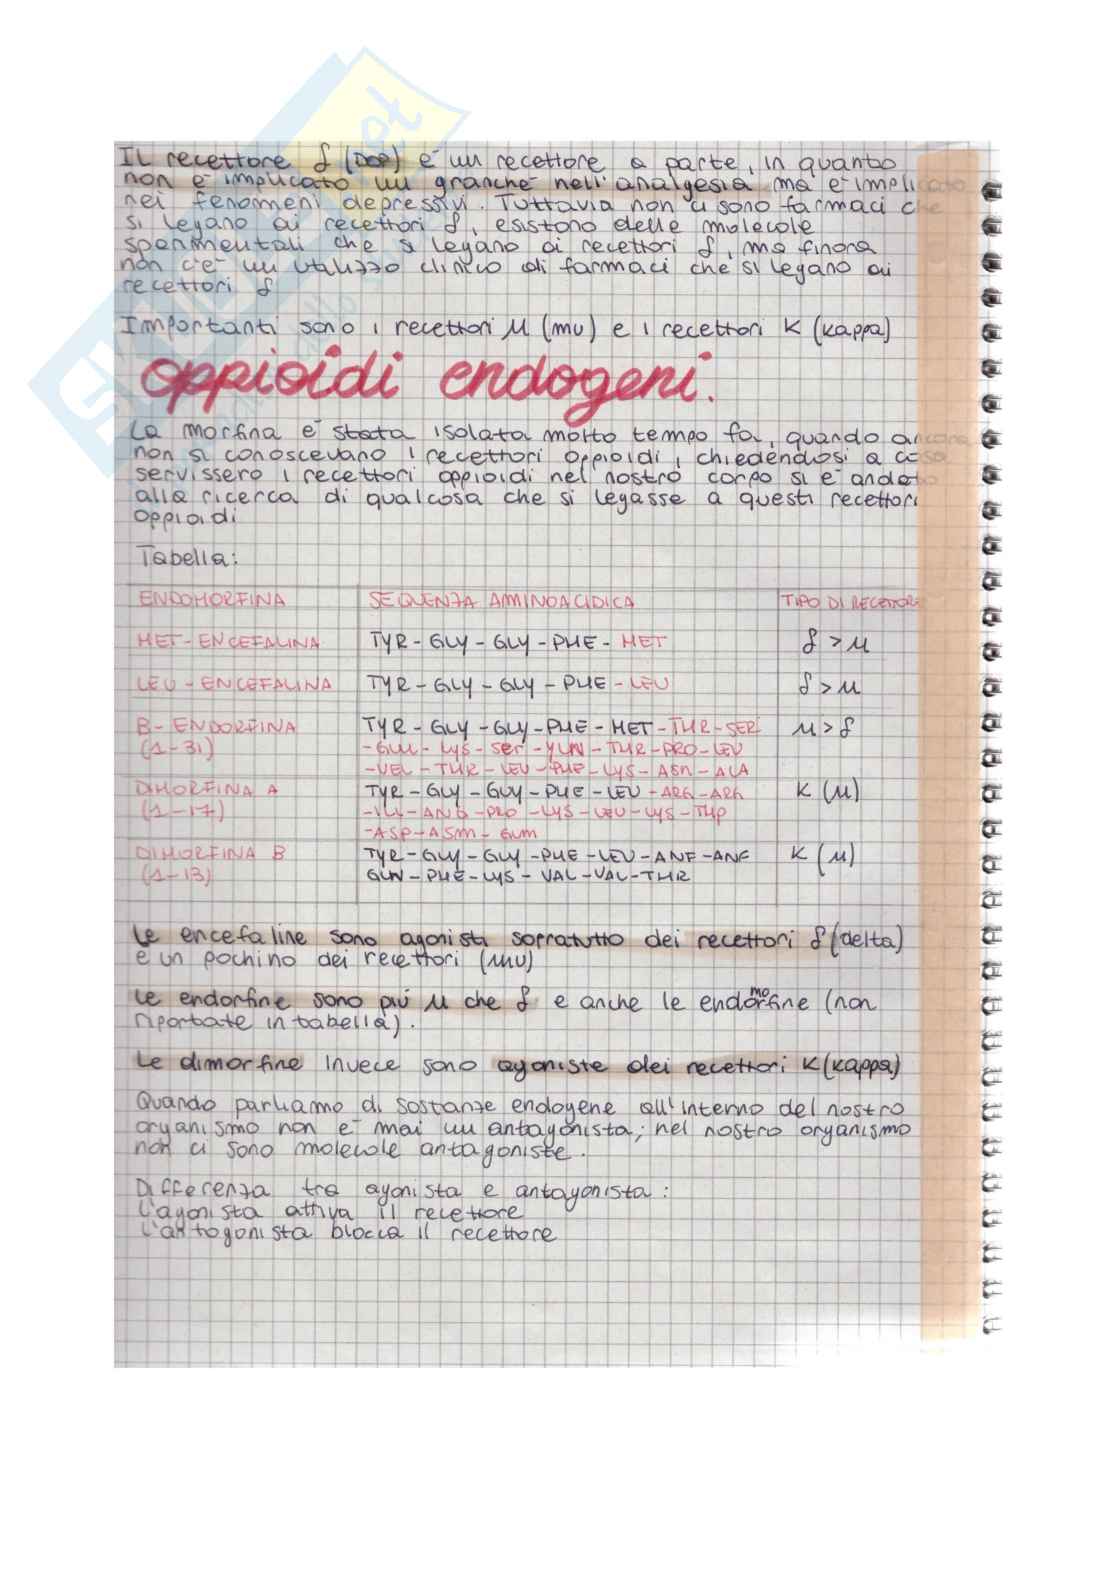 Il recettore δ (DOP) è un recettore a parte, in quanto
non è implicato un granché nell'analgesia ma è implicato
nei fenomeni depressivi. Tuttavia non ci sono farmaci che
si legano ai recettori δ, esistono delle molecole
sperimentali che si legano ai recettori δ, ma finora
non c'è un utilizzo clinico di farmaci che si legano ai
recettori δ
Importanti sono i recettori μ (mu) e i recettori K (kappa)
oppioidi endogeni.
La morfina è stata isolata molto tempo fa, quando ancora
non si conoscevano i recettori oppioidi, chiedendosi a cosa
servissero i recettori oppioidi nel nostro corpo si è andato
alla ricerca di qualcosa che si legasse a questi recettori
oppioidi
Tabella:
ENDOMORFINA SEQUENZA AMMINOACIDICA TIPO DI RECETTORE
MET-ENCEFALINA TYR-GLY-GLY-PHE-MET δ > μ
LEU-ENCEFALINA TYR-GLY-GLY-PHE-LEU δ > μ
B-ENDORFINA TYR-GLY-GLY-PHE-MET-THR-SER μ > δ
(1-31) -GLU-LYS-SER-YLN-THR-PRO-LEU
-VEL-THR-LEU-PHE-LYS-ASN-ALA
DIMORFINA A TYR-GLY-GLY-PHE-LEU-ARG-ARG K (μ)
(1-17) -PRO-LYS-LEU-LYS-THP
-ASP-ASM-GUM
DIMORFINA B TYR-GLY-GLY-PHE-LEU-ANF-ANF K (μ)
(1-13) GLN-PHE-LYS-VAL-VAL-THR
Le encefaline sono agonisti sopratutto dei recettori δ (delta)
e un pochino dei recettori (mu)
Le endorfine sono più μ che δ e anche le endomorfine (non
riportate in tabella).
Le dimorfine invece sono agoniste dei recettori K (kappa)
Quando parliamo di sostanze endogene all'interno del nostro
organismo non è mai un antagonista; nel nostro organismo
non ci sono molecole antagoniste.
Differenza tra agonista e antagonista:
L'agonista attiva il recettore
L'antagonista blocca il recettore